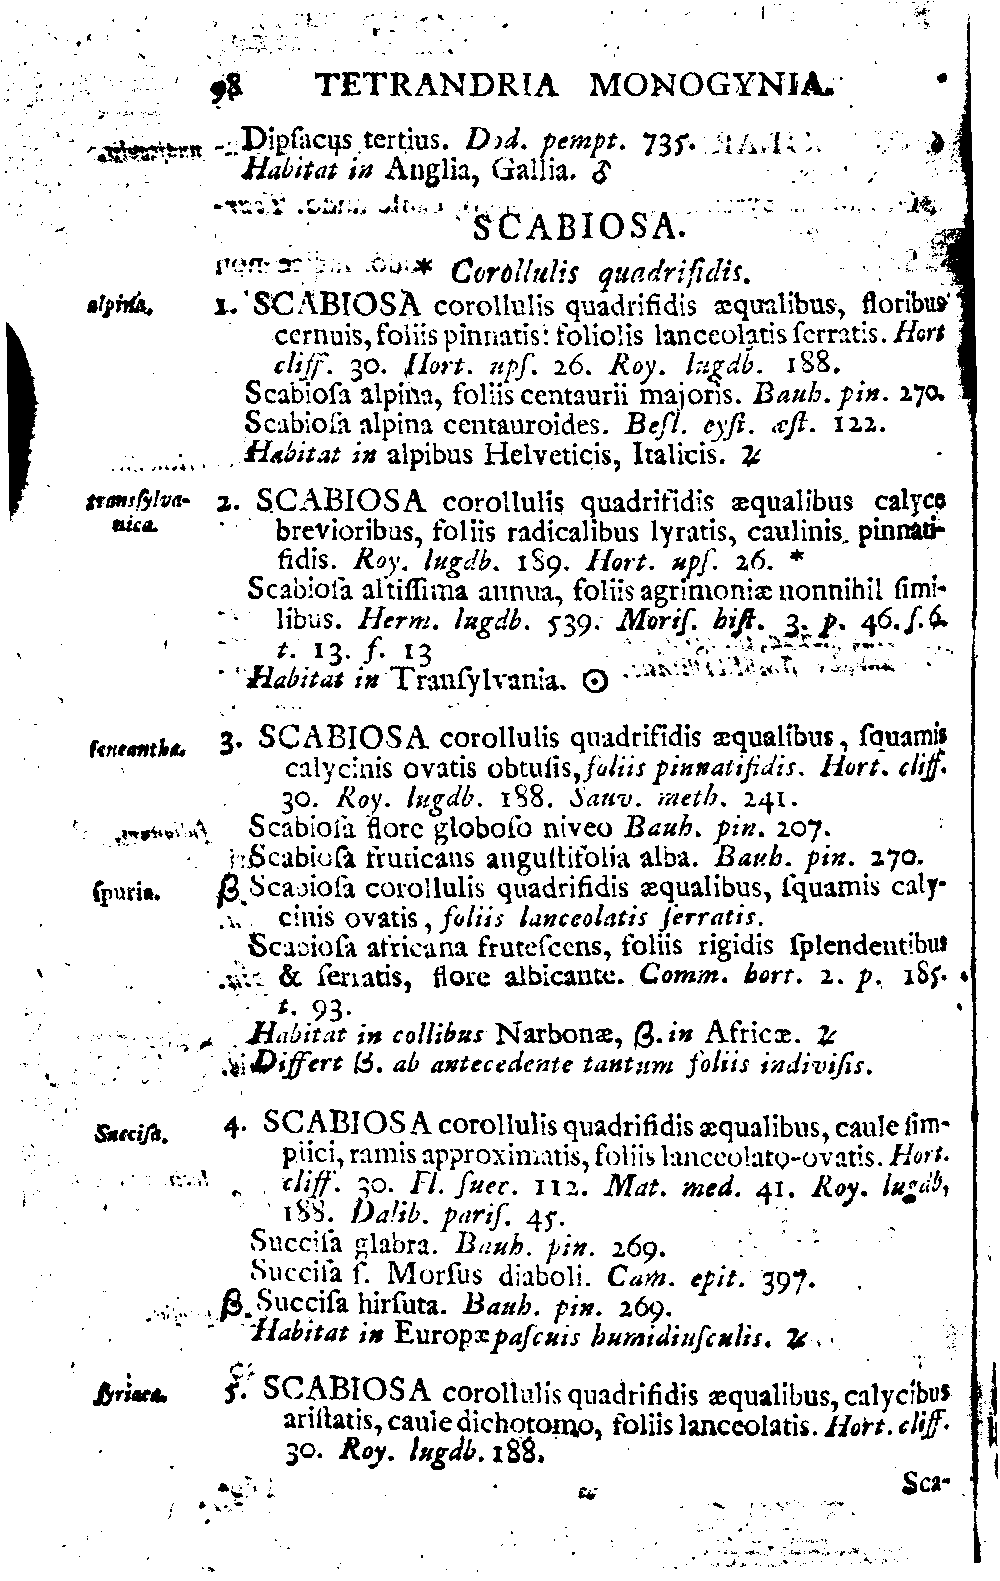 98 TETRANDRIA MONOGYNIA.
Dipſacus tertius. Dod. pempt. 735.
Habitat in Anglia, Gallia. ♂
SCABIOSA.
* Corollulis quadrifidis.
alpina. 1. SCABIOSA corollulis quadrifidis æqualibus, floribus
cernuis, foliis pinnatis: foliolis lanceolatis ſerratis. Hort
cliff. 30. Hort. upſ. 26. Roy. lugdb. 188.
Scabioſa alpina, foliis centaurii majoris. Bauh. pin. 270.
Scabioſa alpina centauroides. Beſl. eyſt. æſt. 122.
Habitat in alpibus Helveticis, Italicis. ♃
tranſylva- 2. SCABIOSA corollulis quadrifidis æqualibus calyce
nica. brevioribus, foliis radicalibus lyratis, caulinis pinnati-
fidis. Roy. lugdb. 189. Hort. upſ. 26. *
Scabioſa altiſſima annua, foliis agrimoniæ nonnihil ſimi-
libus. Herm. lugdb. 539. Moriſ. hiſt. 3. p. 46. ſ. 6.
t. 13. f. 13
Habitat in Tranſylvania. ☉
leucantha. 3. SCABIOSA corollulis quadrifidis æqualibus, ſquamis
calycinis ovatis obtuſis, foliis pinnatifidis. Hort. cliff.
30. Roy. lugdb. 188. Sauv. meth. 241.
Scabioſa flore globoſo niveo Bauh. pin. 207.
Scabioſa fruticans anguſtifolia alba. Bauh. pin. 270.
ſpuria. β. Scabioſa corollulis quadrifidis æqualibus, ſquamis caly-
cinis ovatis, foliis lanceolatis ſerratis.
Scabioſa africana fruteſcens, foliis rigidis ſplendentibus
& ſerratis, flore albicante. Comm. hort. 2. p. 185.
t. 93.
Habitat in collibus Narbonæ, β. in Africæ. ♃
Differt β. ab antecedente tantum foliis indiviſis.
Succiſa. 4. SCABIOSA corollulis quadrifidis æqualibus, caule ſim-
plici, ramis approximatis, foliis lanceolato-ovatis. Hort.
cliff. 30. Fl. ſuec. 112. Mat. med. 41. Roy. lugdb,
188. Dalib. pariſ. 45.
Succiſa glabra. Bauh. pin. 269.
Succiſa ſ. Morſus diaboli. Cam. epit. 397.
β. Succiſa hirſuta. Bauh. pin. 269.
Habitat in Europæ paſcuis humidiuſculis. ♃
ſyriaca. 5. SCABIOSA corollulis quadrifidis æqualibus, calycibus
ariſtatis, caule dichotomo, foliis lanceolatis. Hort. cliff.
30. Roy. lugdb. 188.
Sca-